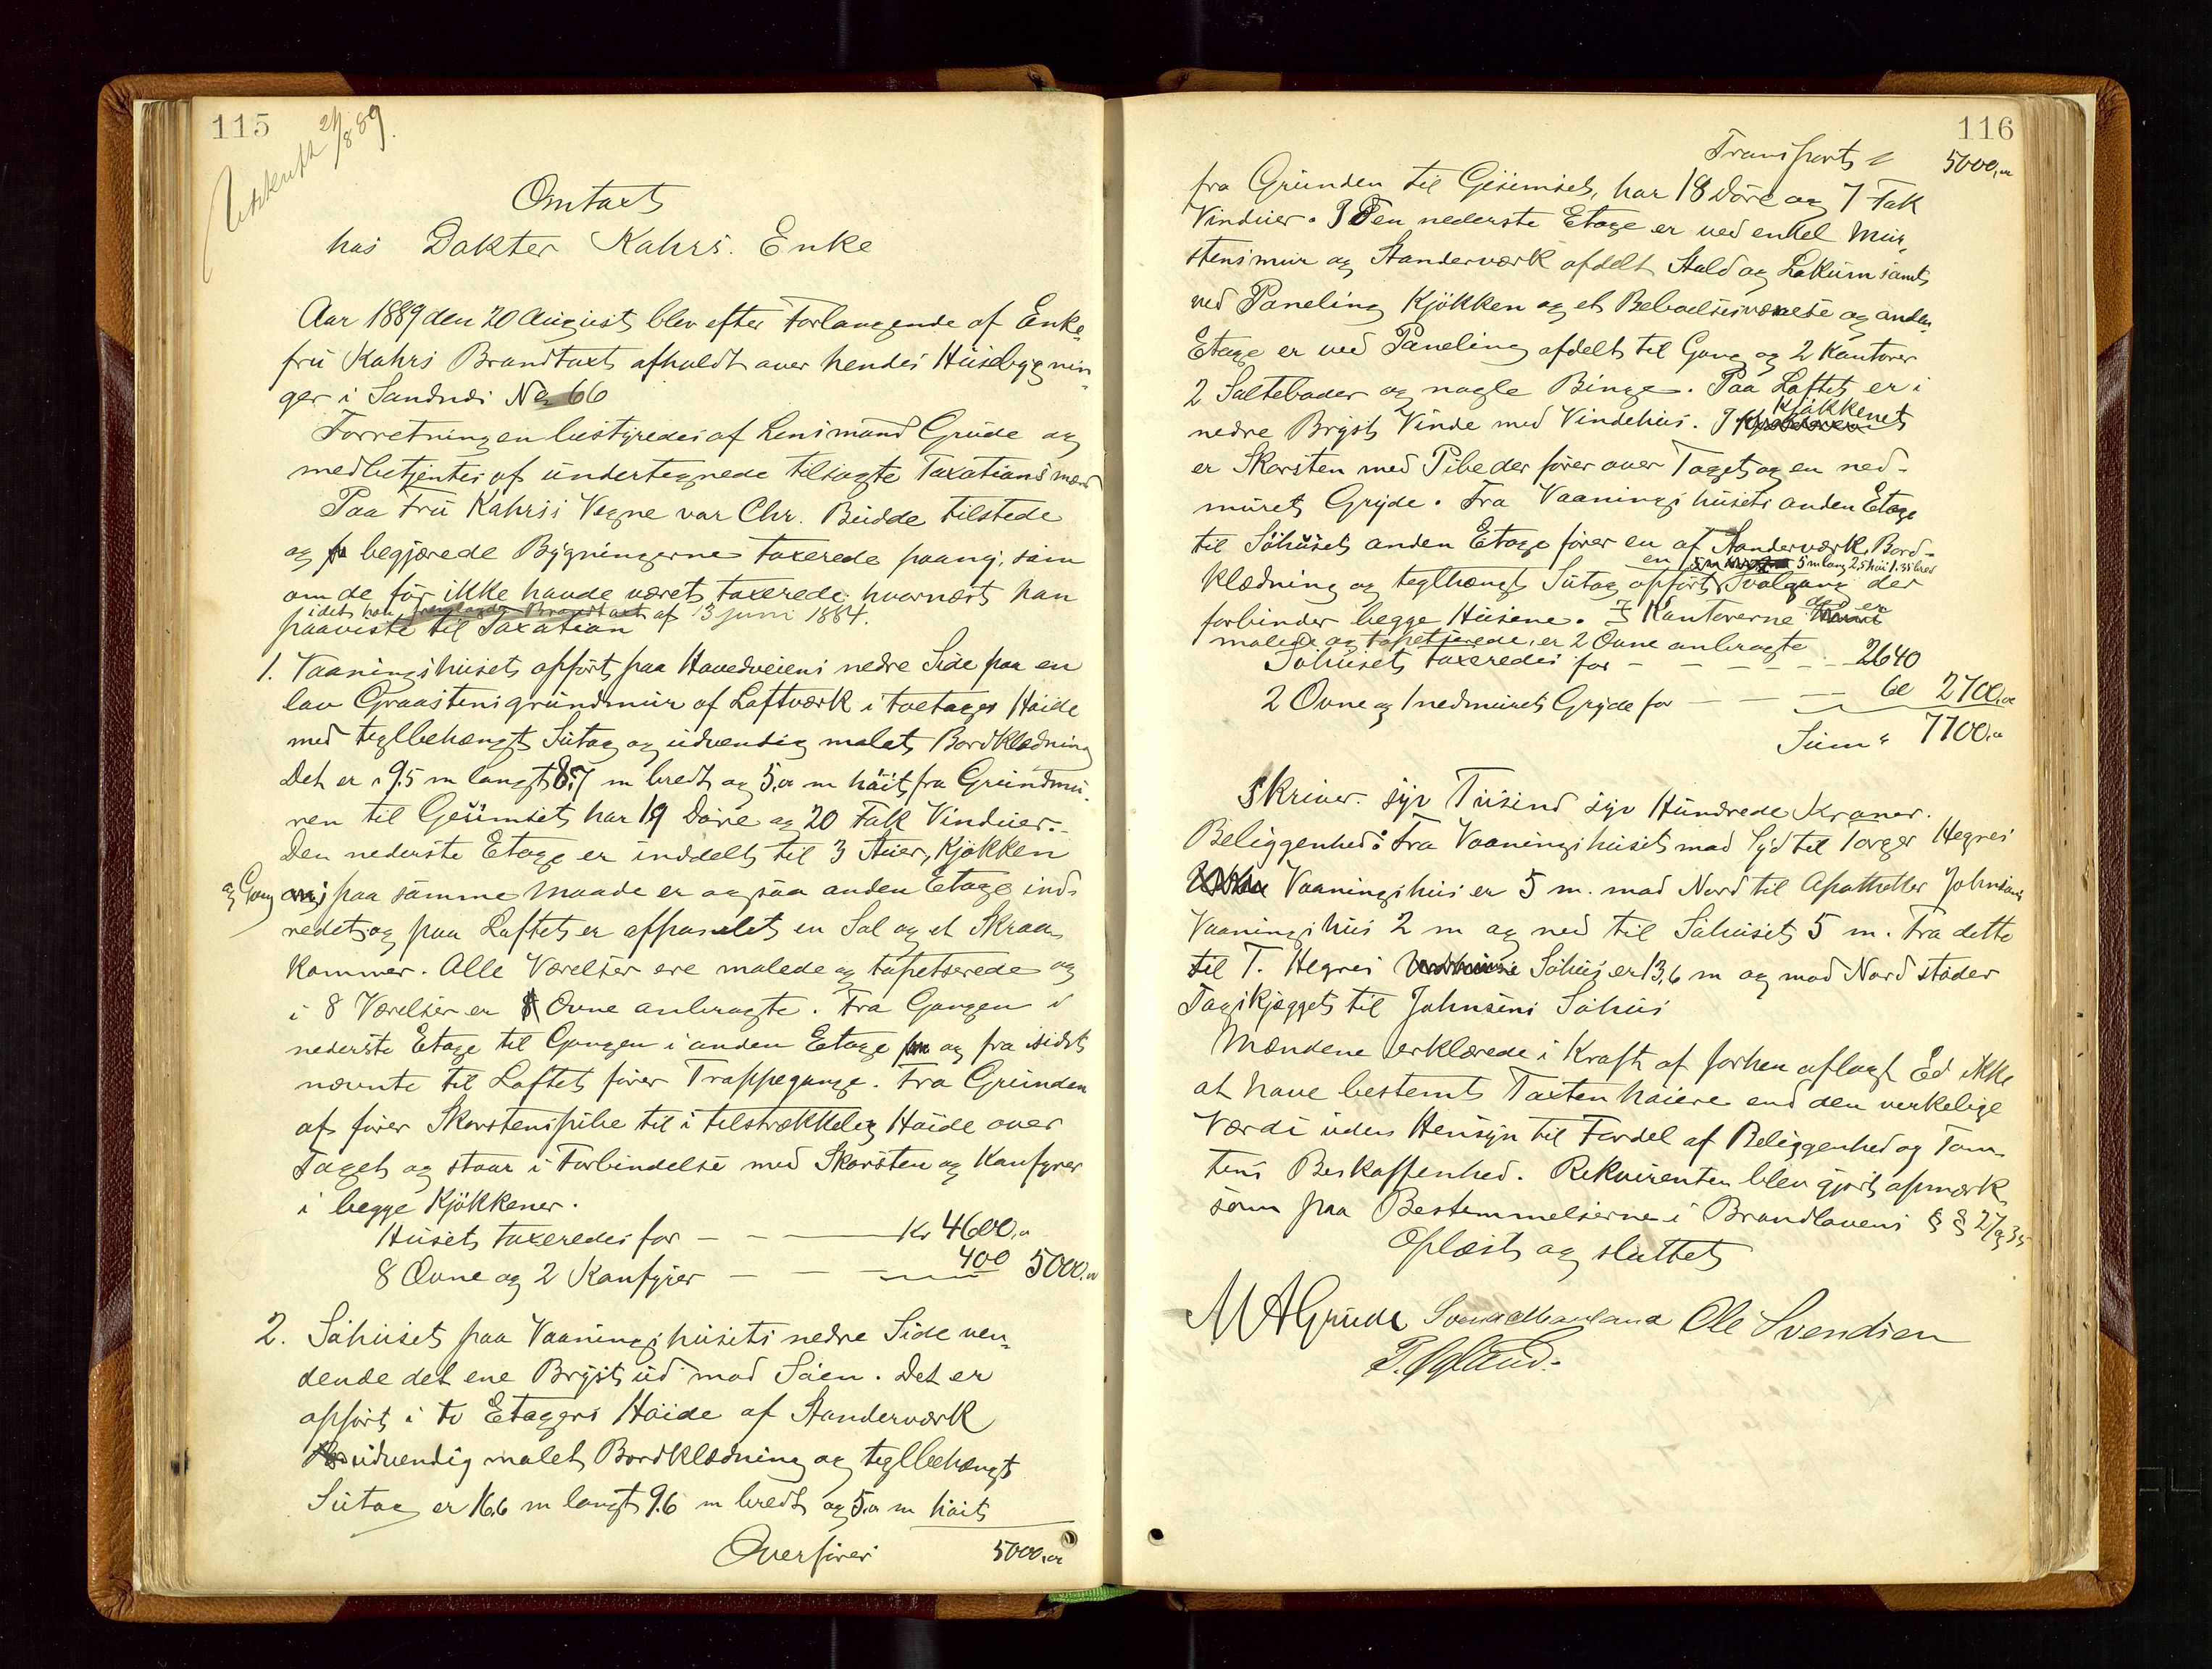 115
21/8 89.
Omtaxt
hos Dokter Kahrs. Enke
Aar 1889 den 20 August blev efter Forlangende af Enke
fru Kahrs Brandtaxt afholdt over hendes Husebygnin
ger i Sandnæs No 66
Forretningen bestyredes af Lensmand Grude og
medbetjentes af undertegnede tilsagte Taxationsmænd
Paa Fru Kahrs's Vegne var Chr. Budde tilstede
og begjærede Bygningerne taxerede paany, som
om de før ikke havde været taxerede. hvornæst han
idet han fremlagde Brandtaxt af 13 juni 1884.
paaviste til Taxation
1. Vaaningshuset opført paa Hovedveiens nedre Side paa en
lav Graastensgrundmur af Laftværk i toetages Høide
med teglbehængt Sutag og udvendig malet Bordklædning
Det er 9.5 m langt 8.7 m bredt og 5,0 m høit fra Grundmu
ren til Gesimset har 19 Døre og 20 Fak Vinduer.-
Den nederste Etage er inddelt til 3 Stuer, Kjøkken
og Gang og paa samme Maade er ogsaa anden Etage ind-
redet, og paa Loftet er afpanelet en Sal og et Skraa
kammer. Alle Værelser ere malede og tapetserede og
i 8 Værelser er 8 Ovne anbragte. Fra Gangen i
nederste Etage til Gangen i anden Etage og fra sidst
nævnte til Loftet fører Trappegange. Fra Grunden
af fører Skorstenspibe til i tilstrækkelig Høide over
Taget og staar i Forbindelse med Skorsten og Komfyrer
i begge Kjøkkener.
Huset taxeredes for - - - Kr 4600,00
8 Ovne og 2 Komfyrer - - - 400 5000.00
2. Søhuset paa Vaaningshusets nedre Side ven
dende det ene Bryst ud mod Søen. Det er
opført i to Etagers Høide af Standerværk
udvendig malet Bordklædning og teglbehængt
Sutag er 16,6 m langt 9.6 m bredt og 5.0 m høit
Overføres 5000.00
116
Transport 5000,00
fra Grunden til Gesimset, har 18 Døre og 7 Fak
Vinduer. I Den nederste Etage er ved enkel Mur
stensmur og Standerværk afdelt Stald og Lokum samt
ved Paneling Kjøkken og et Beboelsesværelse og anden
Etage er ved Paneling afdelt til Gang og 2 Kontorer
2 Salteboder og nogle Binge. Paa Loftet er i
nedre Bryst Vinde med Vindehus. I Kjøkkenet
er Skorsten med Pibe der fører over Taget og en ned-
muret Gryde. Fra Vaaningshusets anden Etage
til Søhusets anden Etage fører en af Standerværk, Bord-
en 5 m lang 2,5 høi 1.35 bred
klædning og teglhængt Sutag opført Svalgang der
forbinder begge Husene. I Kontorerne der er
malede og tapetserede, er 2 Ovne anbragte
Søhuset taxeredes for - - - - - 2640
2 Ovne og 1 nedmuret Gryde for - - - 60 2700,00
Sum 7700,00
Skriver. syv Tusind syv Hundrede Kroner.
Beliggenhed: Fra Vaaningshuset mod Syd til Torger Hegres
Vaaningshus er 5 m. mod Nord til Apotheker Johnsens
Vaaningshus 2 m og ned til Søhuset 5 m. Fra dette
til T. Hegres Søhus er 13,6 m og mod Nord støder
Tagskjægget til Johnsens Søhus
Mændene erklærede i Kraft af forhen aflagt Ed ikke
at have bestemt Taxten høiere end den verkelige
Værdi uden Hensyn til Fordel af Beliggenhed og Tom
tens Beskaffenhed. Rekvirenten blev gjort opmærk
som paa Bestemmelserne i Brandlovens § § 27 og 35
Oplæst og sluttet
M A Grude Ole Svendsen